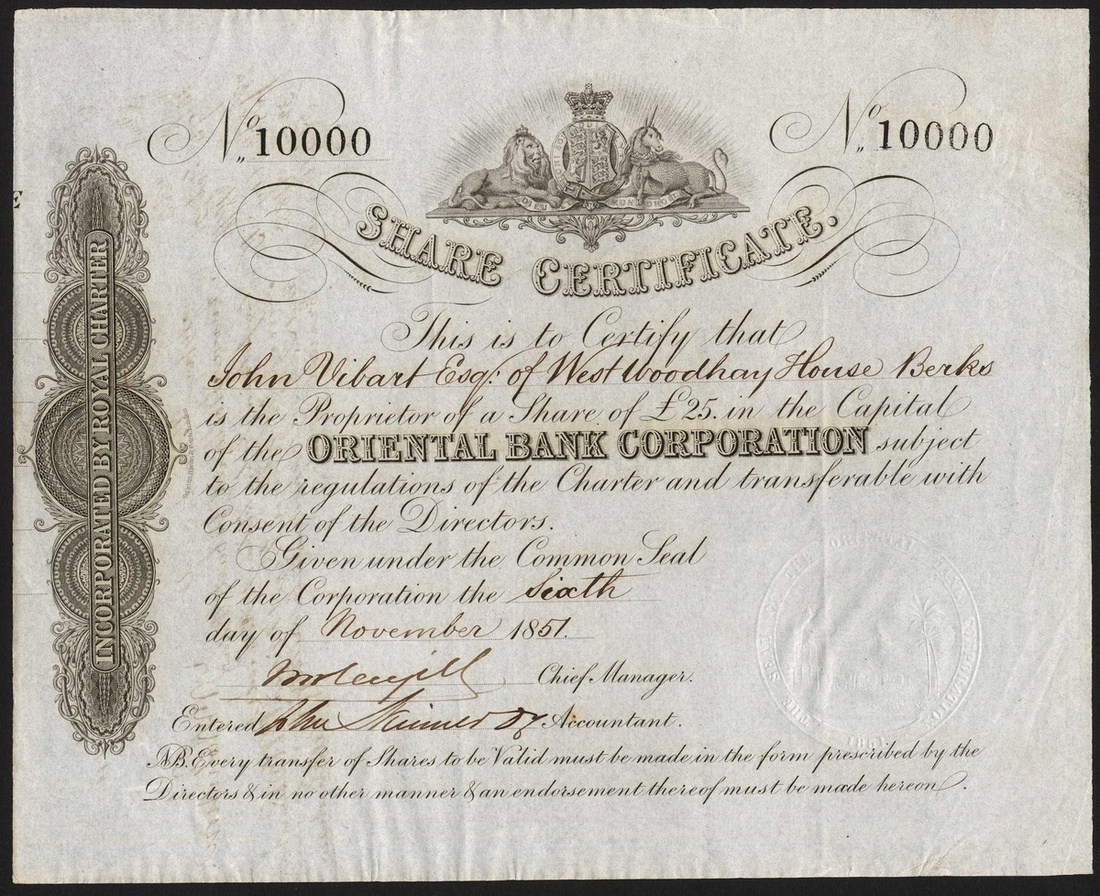 No 10000
No 10000
DIEU MON DROIT
SHARE CERTIFICATE.
INCORPORATED BY ROYAL CHARTER
This is to Certify that
John Vibart Esqr. of West Woodhay House Berks
is the Proprietor of a Share of £25. in the Capital
of the ORIENTAL BANK CORPORATION subject
to the regulations of the Charter and transferable with
Consent of the Directors.
Given under the Common Seal
of the Corporation the Sixth
day of November 1851.
Chief Manager.
Entered John Skinner Accountant.
NB. Every transfer of Shares to be Valid must be made in the form prescribed by the
Directors & in no other manner & an endorsement thereof must be made hereon.
ORIENTAL BANK CORPORATION
1851